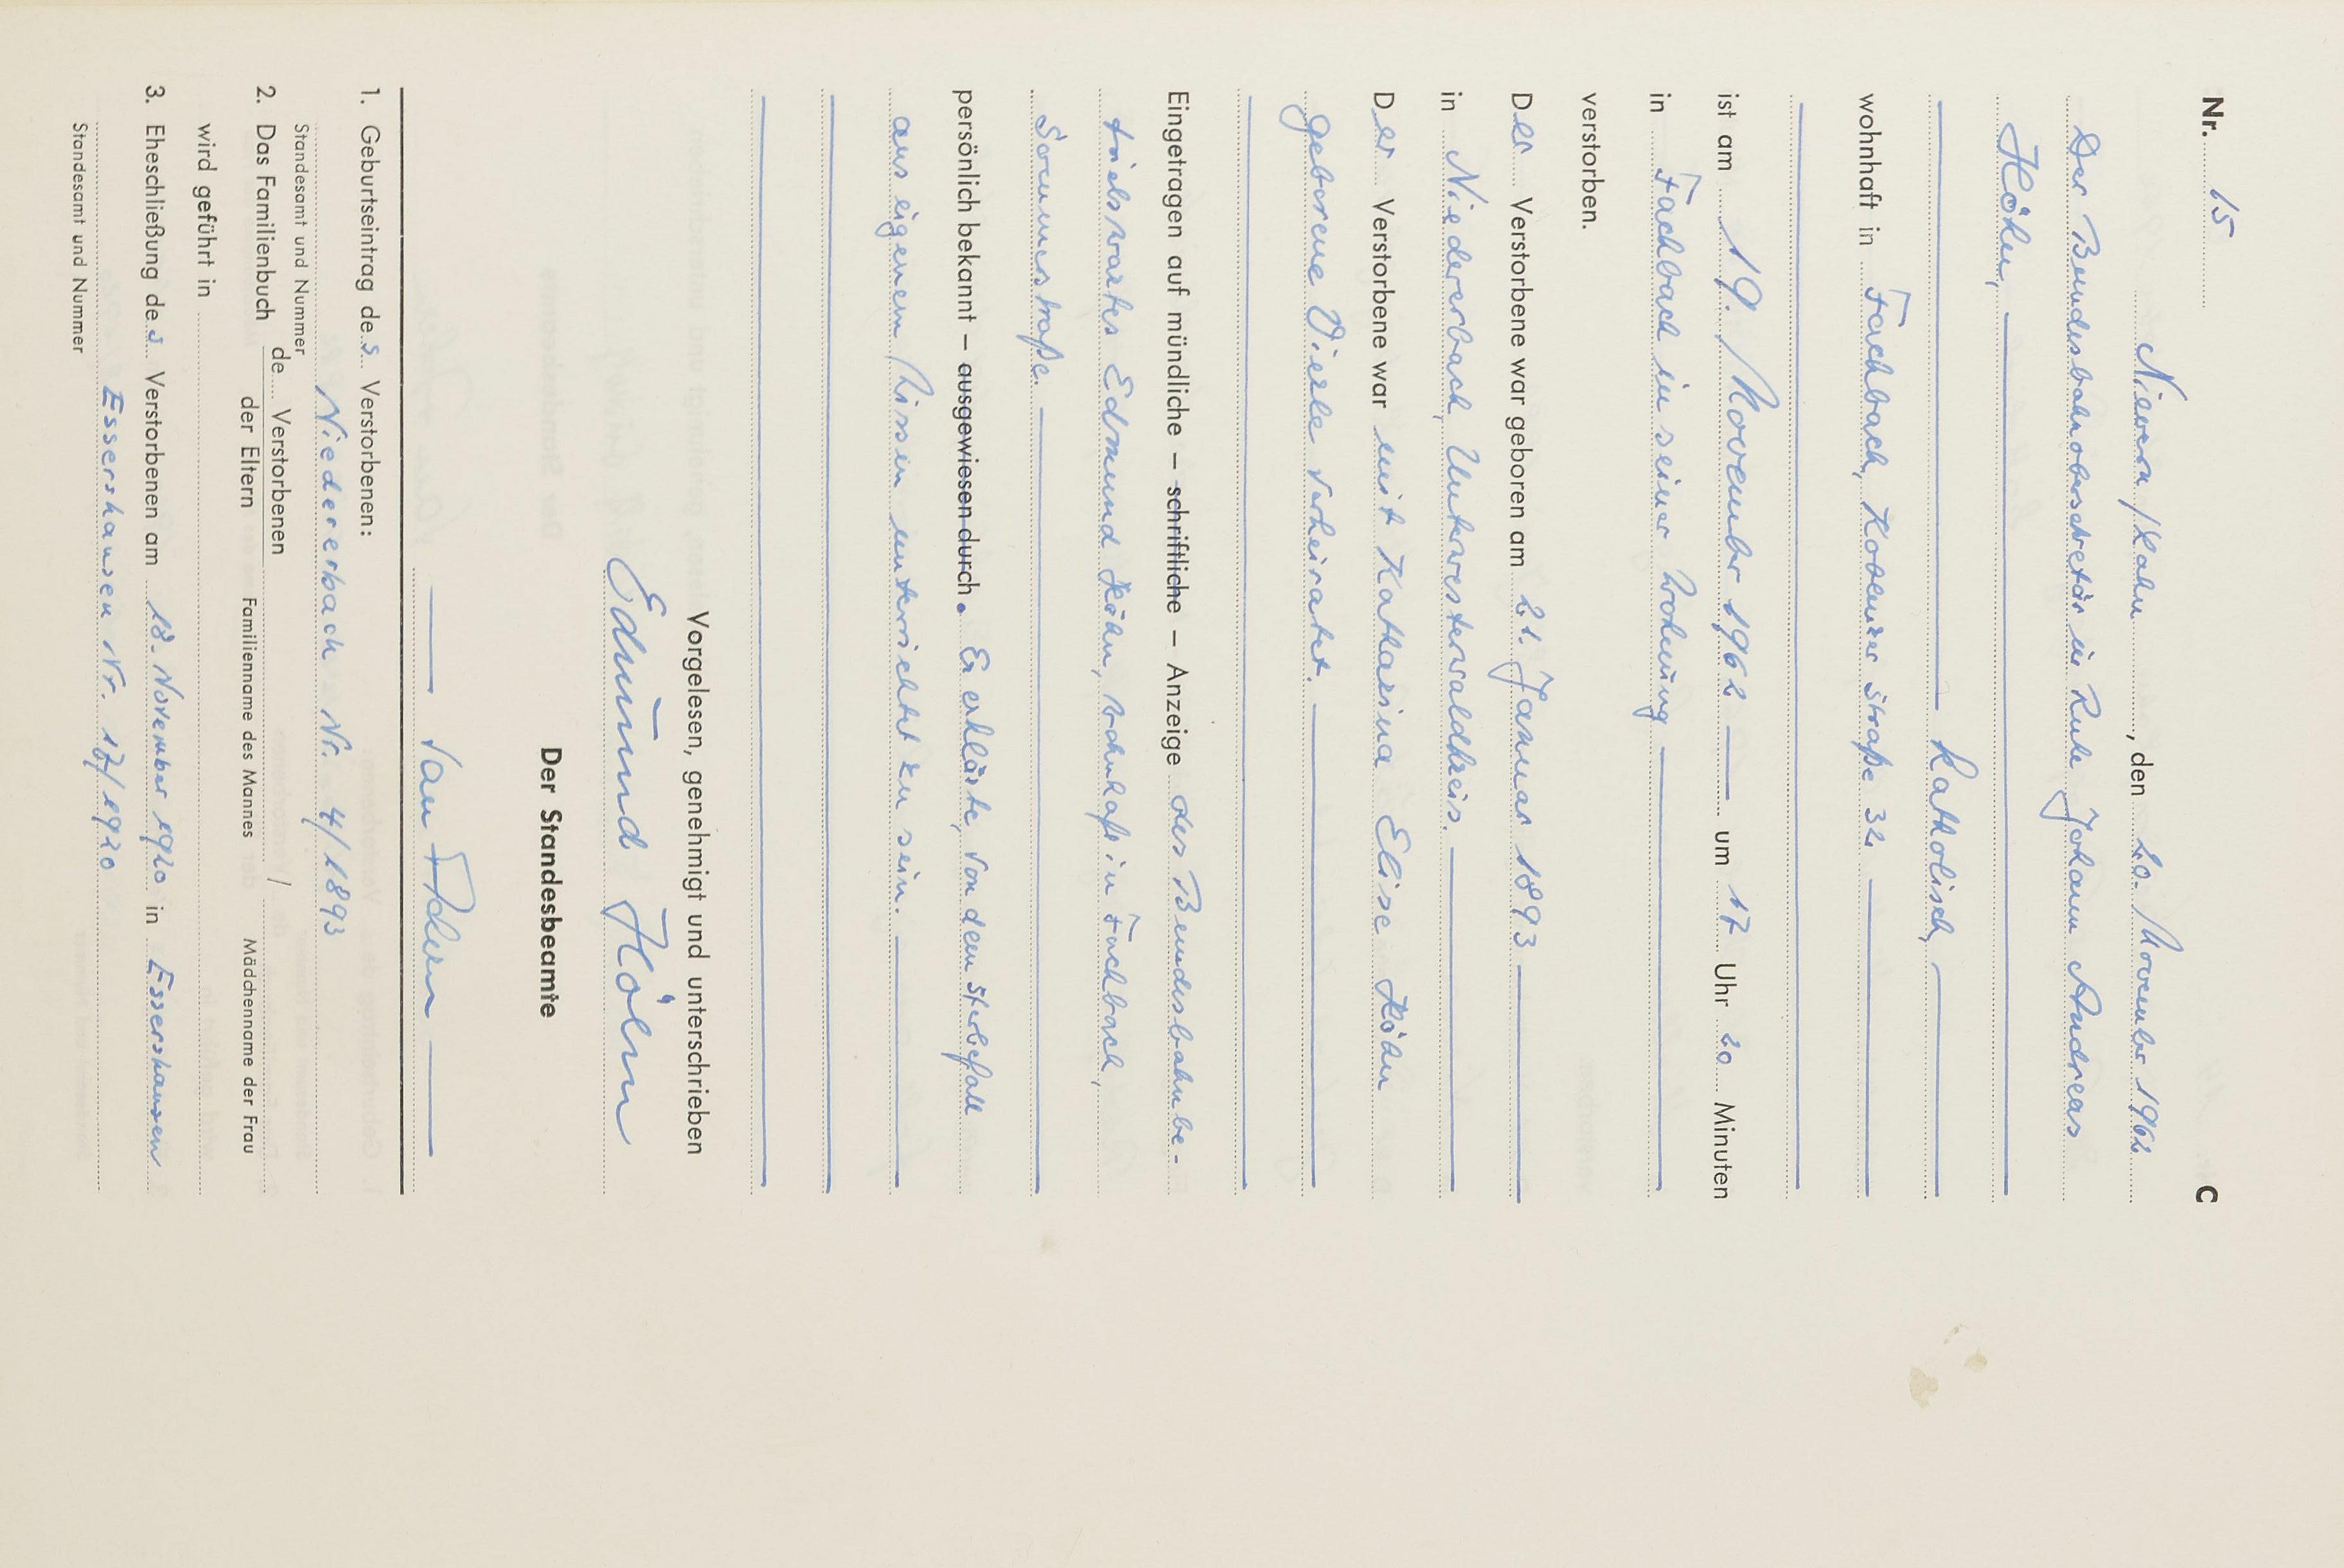 Nr. 15 C
Nievern/Lahn, den 20. November 1962
Der Bundesbahnobersekretär in Ruhe Johann Andreas
Höhn,
katholisch,
wohnhaft in Fachbach, Koblenzer Straße 32
ist am 19. November 1962 um 17 Uhr 20 Minuten
in Fachbach in seiner Wohnung
verstorben.
Der Verstorbene war geboren am 21. Januar 1893
in Niedererbach, Unterwesterwaldkreis.
Der Verstorbene war mit Katharina Elise Höhn
geborene Dierle verheiratet.
Eingetragen auf mündliche – schriftliche – Anzeige des Bundesbahnbe-
triebswartes Edmund Höhn, wohnhaft in Fachbach,
Sommerstraße.
persönlich bekannt – ausgewiesen durch. Er erklärte, von dem Sterbefall
aus eigenem Wissen unterrichtet zu sein.
Vorgelesen, genehmigt und unterschrieben
Edmund Höhn
Der Standesbeamte
1. Geburtseintrag des Verstorbenen:
Niedererbach Nr. 4/1893
Standesamt und Nummer
2. Das Familienbuch de Verstorbenen
der Eltern Familienname des Mannes / Mädchenname der Frau
wird geführt in
3. Eheschließung des Verstorbenen am 18. November 1920 in Essershausen
Essershausen Nr. 17/1920
Standesamt und Nummer